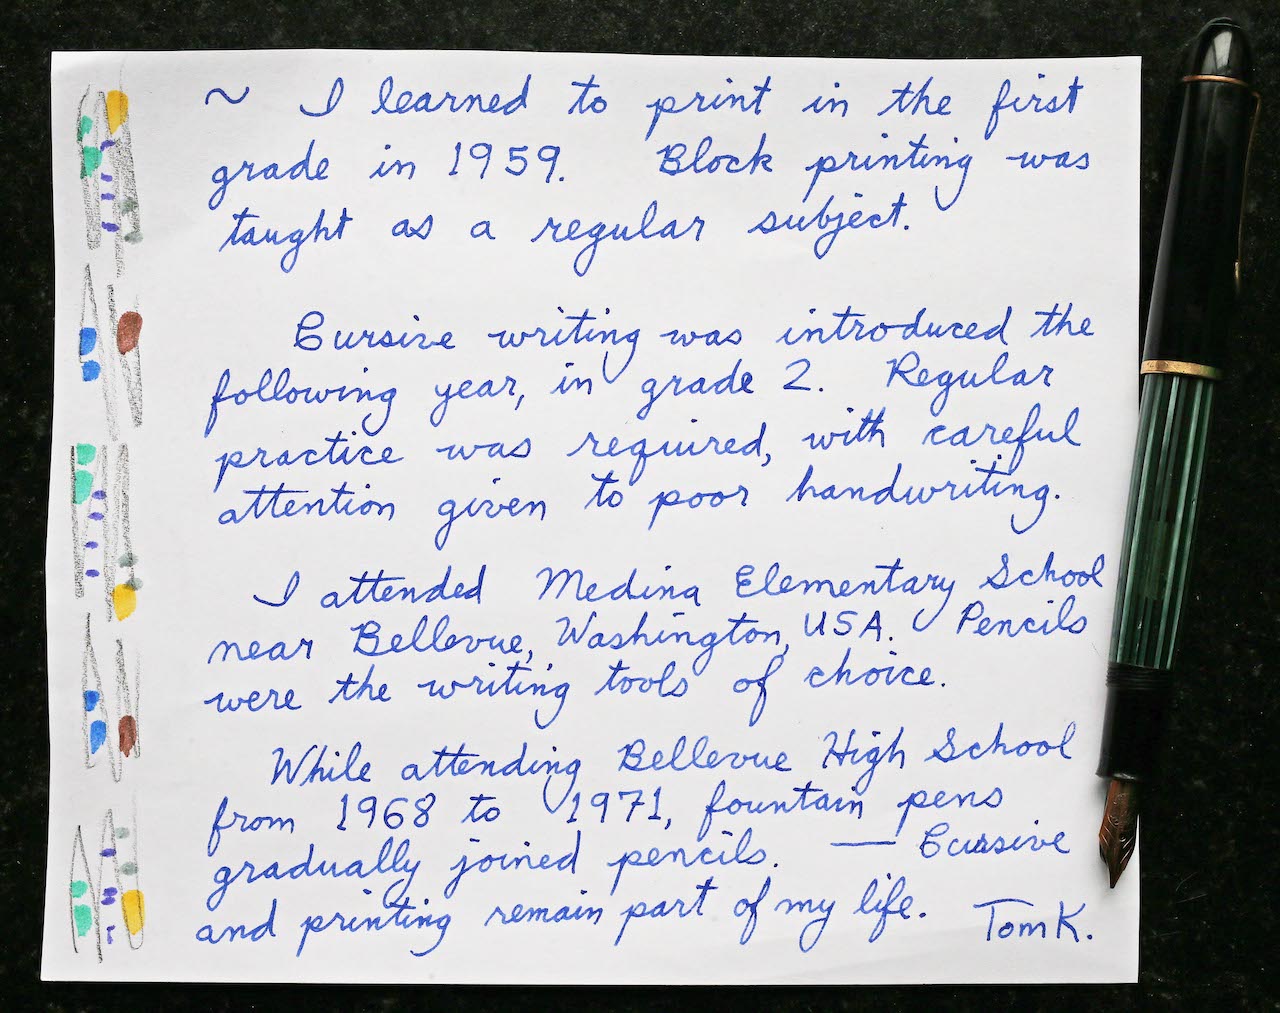 ~ I learned to print in the first
grade in 1959. Block printing was
taught as a regular subject.
Cursive writing was introduced the
following year, in grade 2. Regular
practice was required, with careful
attention given to poor handwriting.
I attended Medina Elementary School
near Bellevue, Washington, USA. Pencils
were the writing tools of choice.
While attending Bellevue High School
from 1968 to 1971, fountain pens
gradually joined pencils. — Cursive
and printing remain part of my life. Tom K.